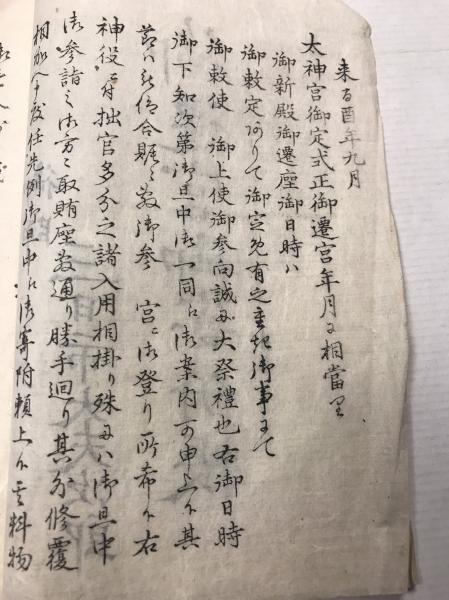 来る酉年九月
太神宮御定式正御遷宮年月ニ相當里
御新殿御遷座御日時ハ
御敕定ありて御定免有之重起御事ニて
御敕使 御上使御参向誠ニ大祭禮也右御日時
御下知次第御旦中江一同ニ御案内可申上候其
節ハ 合賑々敷御参 宮ニ御登り所希候右
神役ニ付拙官多分之諸入用相掛り殊ニハ御旦中
御參詣之御方々取賄座敷通り勝手廻り其外修覆
相加へ 度任先例御旦中江御寄附頼上候 料物